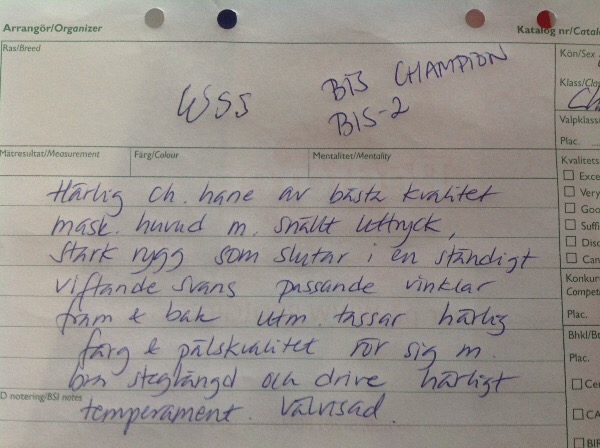 Arrangör/Organizer
Katalog nr/Catalo
Ras/Breed
WSS
BIS CHAMPION
BIS-2
Kön/Sex
Klass/Clas
Ch
Valpklass
Plac.
Mätresultat/Measurement
Färg/Colour
Mentalitet/Mentality
Kvalitets
Exce
Very
Goo
Suffi
Disq
Can
Härlig ch. hane av bästa kvalitet
mask. huvud m. snällt uttryck,
stark rygg som slutar i en ständigt
viftande svans passande vinklar
fram & bak utm. tassar härlig
färg & pälskvalitet rör sig m.
bra steglängd och drive härligt
temperament. Välvisad.
Konkur
Compet
Plac.
Bhkl/Bt
Plac.
Cer
CA
BIR
D notering/BSI notes